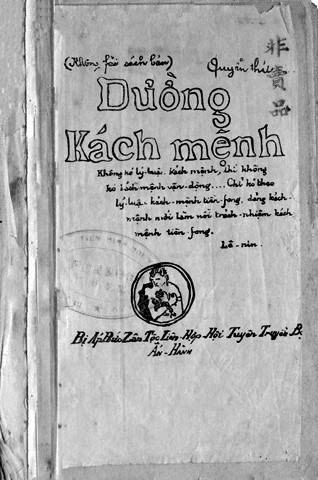 (Không fải sách bán) Quyển thứ
非賣品
Đường
Kách mệnh
Không kó lý-luận kách mệnh, thì không
kó kách mệnh vận-động.... Chỉ kó theo
lý-luận kách-mệnh tiền-fong, đảng kách-
mệnh mới làm nổi trách-nhiệm kách
mệnh tiền-fong.
Lê-nin.
Bị Áp Bức Zân Tộc Liên-Hợp-Hội Tuyên Truyền Bộ
Ấn-Hành